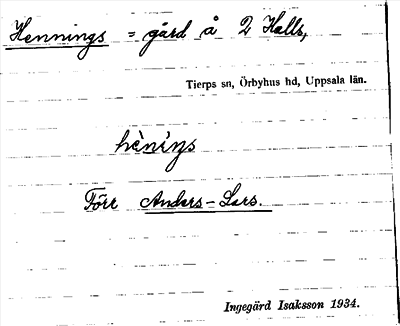 Hennings = gård å 2 Halls,
Tierps sn, Örbyhus hd, Uppsala län.
hèniŋs
Förr Anders-Lars.
Ingegärd Isaksson 1934.